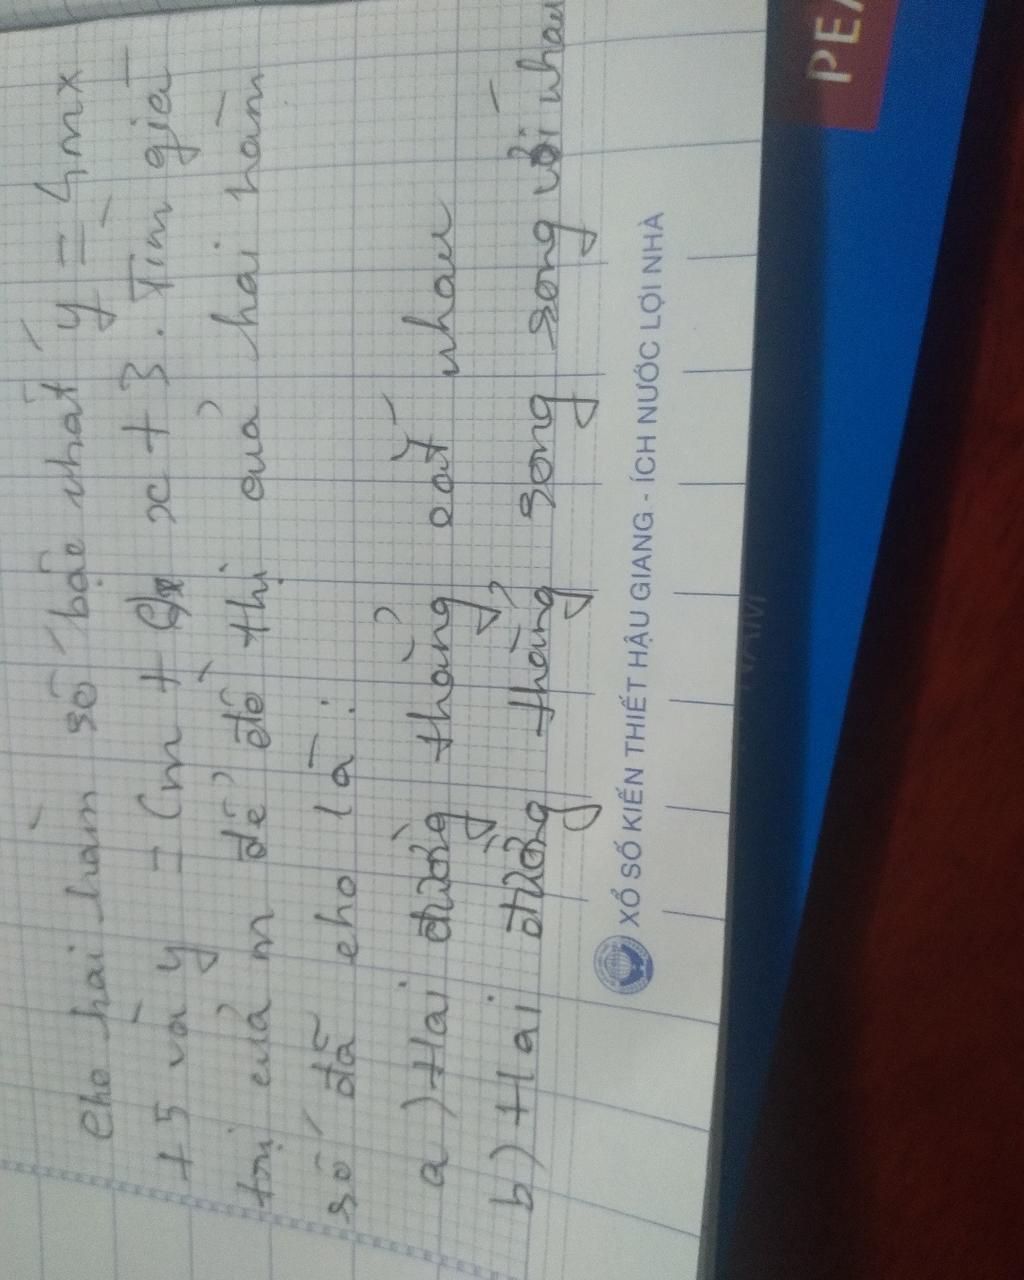 cho hai hàm số bậc nhất y = 4mx
+ 5 và y = (m + x + 3. Tìm giá
trị của m để đồ thị của hai hàm
số đã cho là:
a) Hai đường thẳng cắt nhau
b) Hai đường thẳng song song với nhau
XỔ SỐ KIẾN THIẾT HẬU GIANG - ÍCH NƯỚC LỢI NHÀ
PE